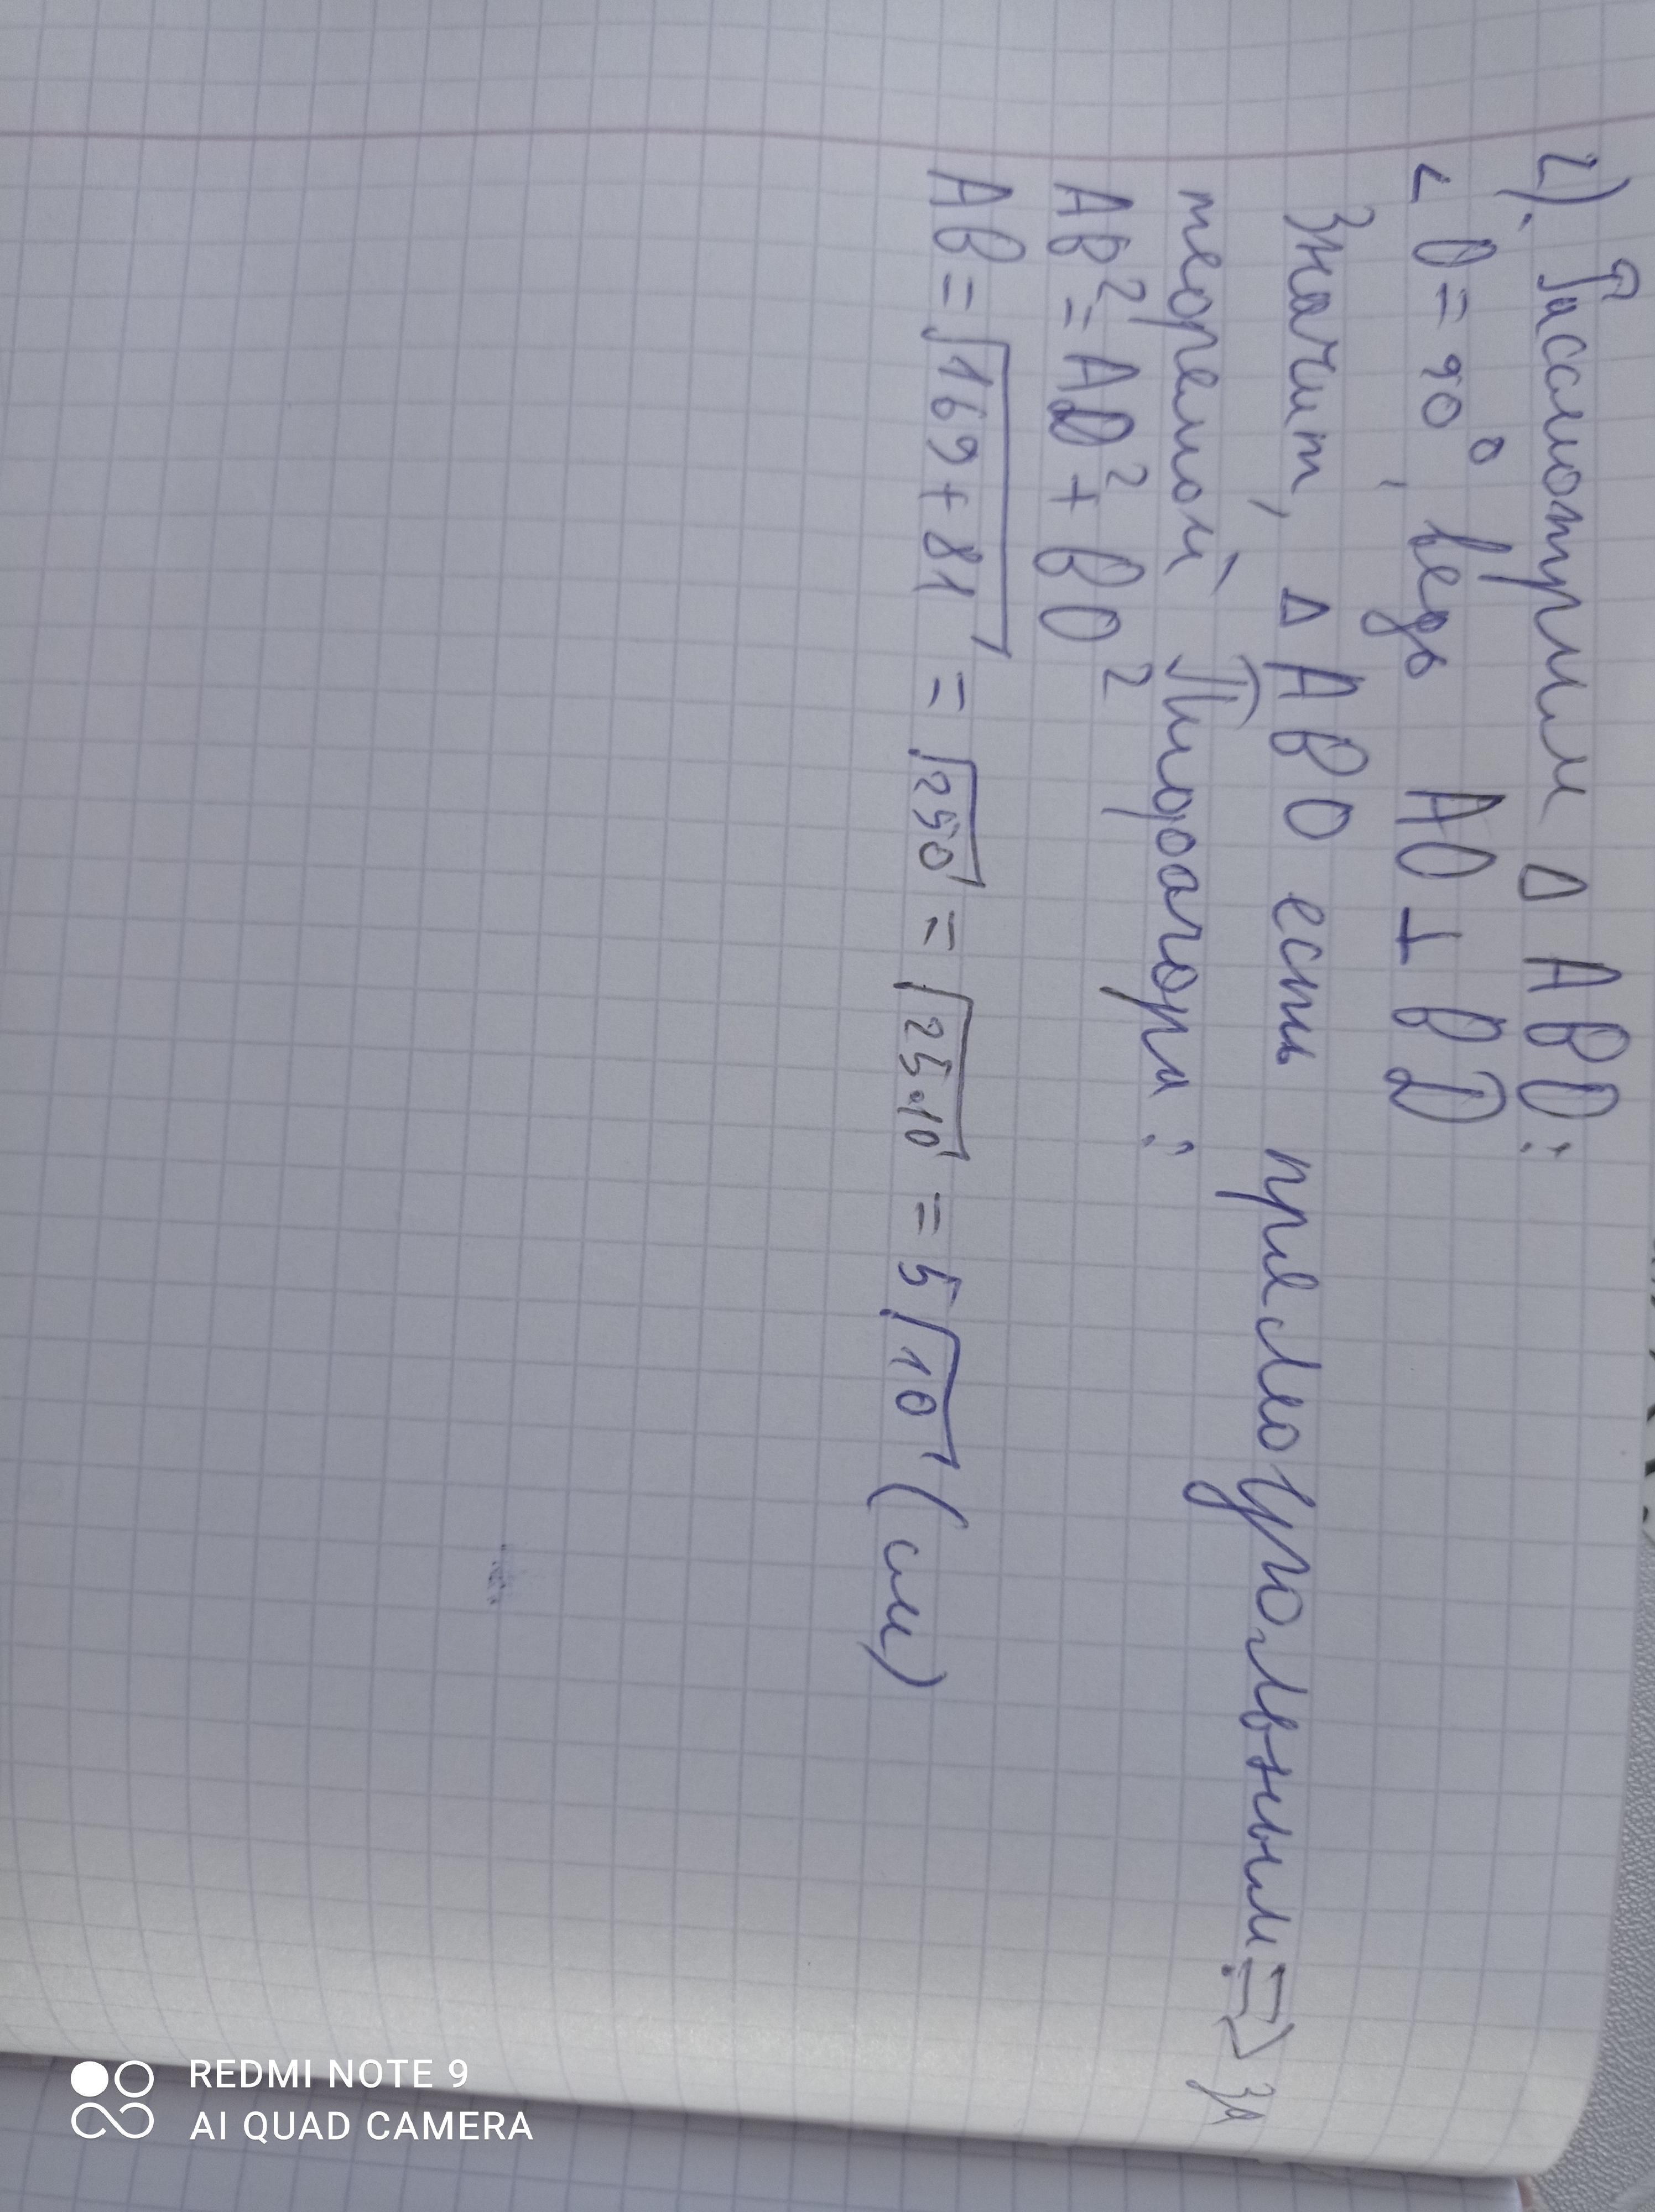 2). Рассмотрим Δ ABO:
< O = 90°, ведь AO ⊥ BD
Значит, Δ ABO есть прямоугольным => За
теоремой Пифагора:
AB² = AO² + BO²
AB = √169 + 81 = √250 = √25·10 = 5√10 (см)
REDMI NOTE 9
AI QUAD CAMERA